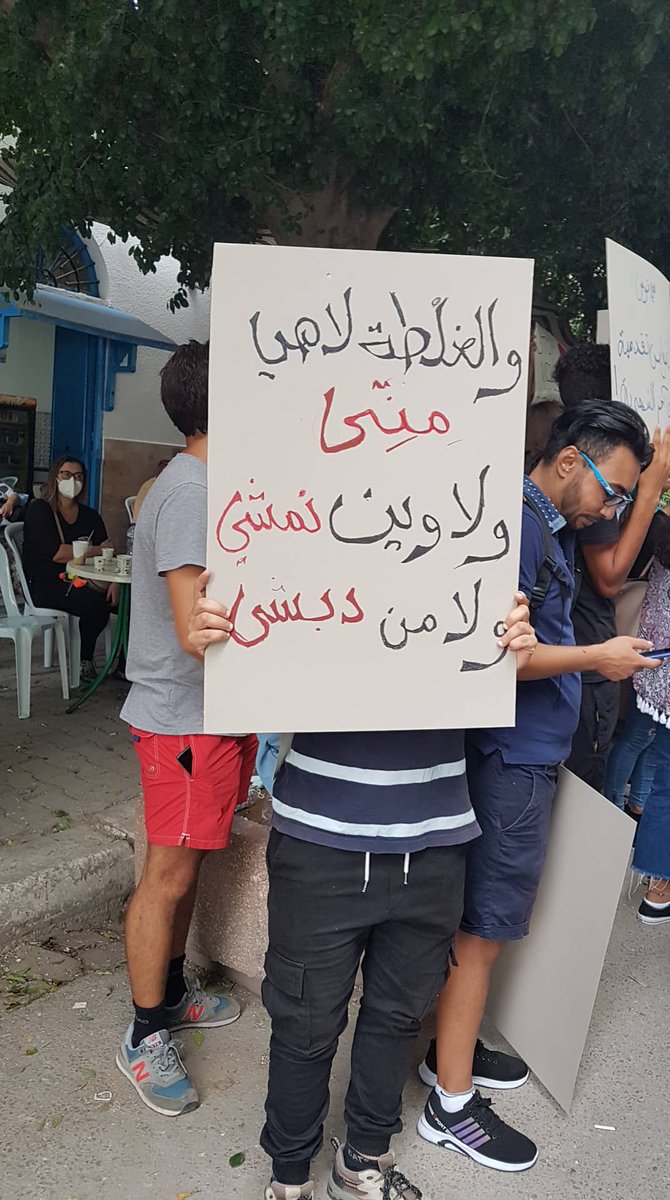 والغلْطة لاهيا
مِنّى
ولا وين نمشى
ولا من دبشى